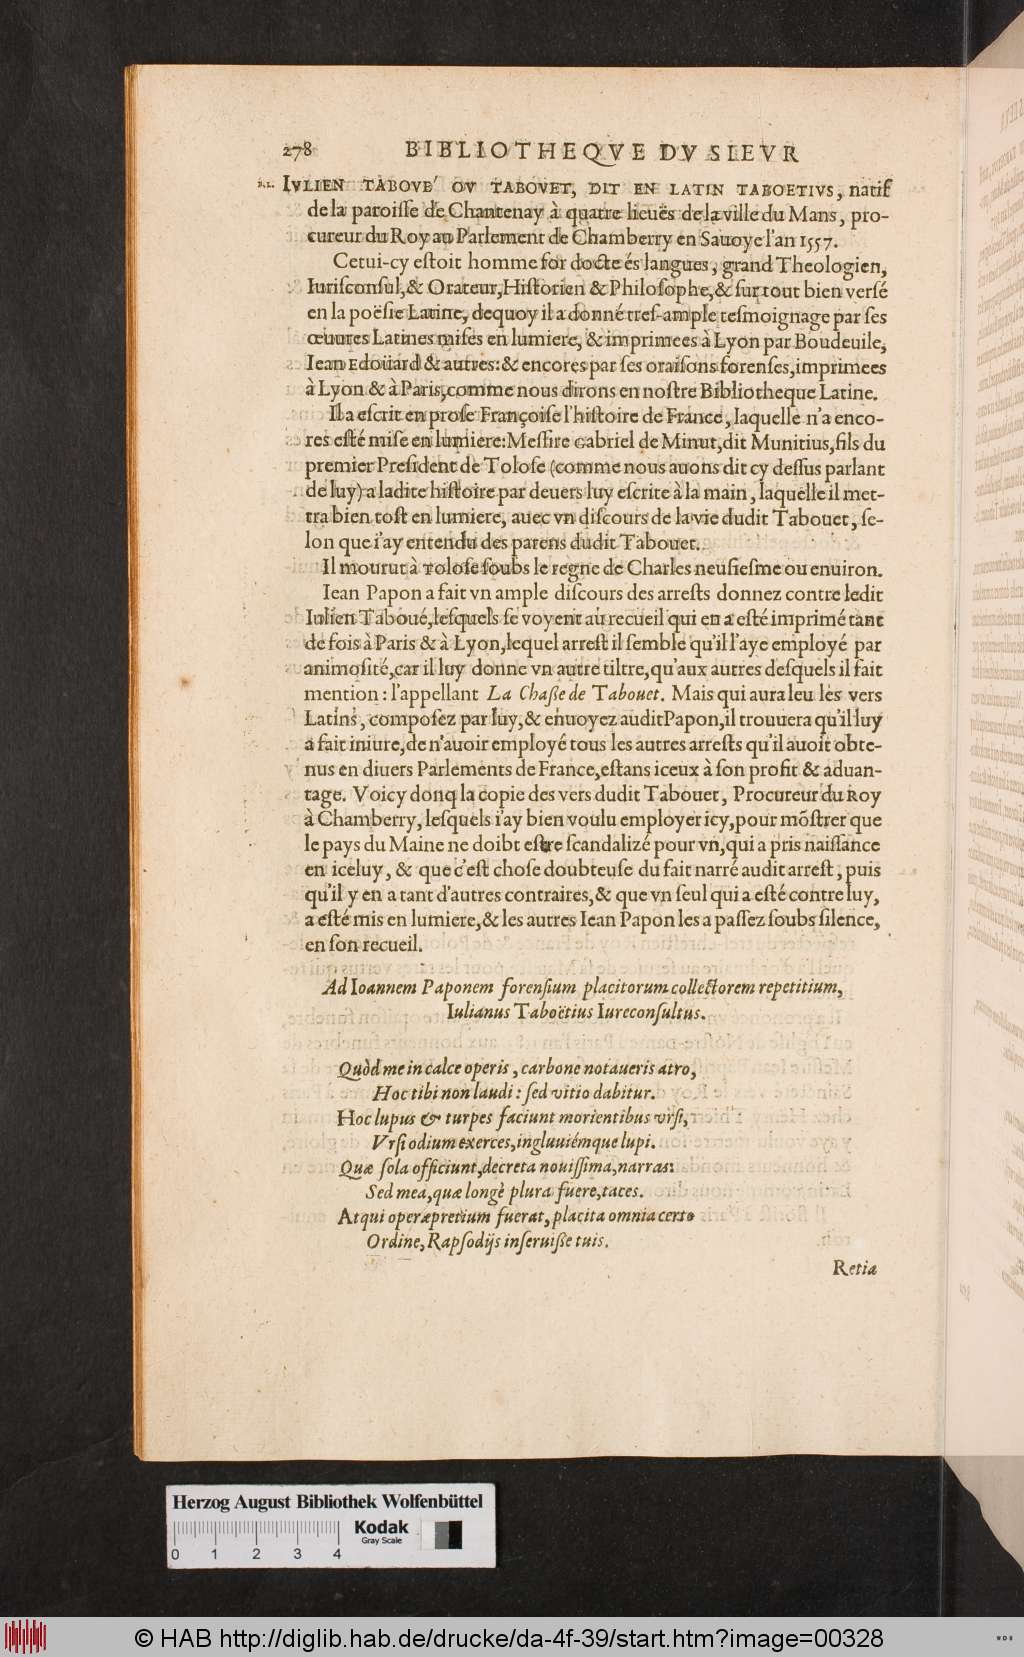 278 BIBLIOTHEQVE DV SIEVR
IVLIEN TABOVE' OV TABOVET, DIT EN LATIN TABOETIVS, natif
de la paroiſſe de Chantenay à quatre lieuës de la ville du Mans, pro-
cureur du Roy au Parlement de Chamberry en Sauoye l'an 1557.
Cetui-cy eſtoit homme for docte és langues, grand Theologien,
Iuriſconſul, & Orateur, Hiſtorien & Philoſophe, & ſur tout bien verſé
en la poëſie Latine, dequoy il a donné treſ-ample teſmoignage par ſes
œuures Latines miſes en lumiere, & imprimees à Lyon par Boudeuile,
Iean Edoüard & autres: & encores par ſes oraiſons forenſes, imprimees
à Lyon & à Paris, comme nous dirons en noſtre Bibliotheque Latine.
Il a eſcrit en proſe Françoiſe l'hiſtoire de France, laquelle n'a enco-
res eſté miſe en lumiere: Meſſire Gabriel de Minut, dit Munitius, fils du
premier Preſident de Toloſe (comme nous auons dit cy deſſus parlant
de luy) a ladite hiſtoire par deuers luy eſcrite à la main, laquelle il met-
tra bien toſt en lumiere, auec vn diſcours de la vie dudit Tabouet, ſe-
lon que i'ay entendu des parens dudit Tabouet.
Il mourut à Toloſe ſoubs le regne de Charles neuſieſme ou enuiron.
Iean Papon a fait vn ample diſcours des arreſts donnez contre ledit
Iulien Taboué, leſquels ſe voyent au recueil qui en a eſté imprimé tant
de fois à Paris & à Lyon, lequel arreſt il ſemble qu'il l'aye employé par
animoſité, car il luy donne vn autre tiltre, qu'aux autres deſquels il fait
mention: l'appellant La Chaſſe de Tabouet. Mais qui aura leu les vers
Latins, compoſez par luy, & enuoyez audit Papon, il trouuera qu'il luy
a fait iniure, de n'auoir employé tous les autres arreſts qu'il auoit obte-
nus en diuers Parlements de France, eſtans iceux à ſon profit & aduan-
tage. Voicy donq la copie des vers dudit Tabouet, Procureur du Roy
à Chamberry, leſquels i'ay bien voulu employer icy, pour mõſtrer que
le pays du Maine ne doibt eſtre ſcandalizé pour vn, qui a pris naiſſance
en iceluy, & que c'eſt choſe doubteuſe du fait narré audit arreſt, puis
qu'il y en a tant d'autres contraires, & que vn ſeul qui a eſté contre luy,
a eſté mis en lumiere, & les autres Iean Papon les a paſſez ſoubs ſilence,
en ſon recueil.
Ad Ioannem Paponem forenſium placitorum collectorem repetitium,
Iulianus Taboëtius Iureconſultus.
Quòd me in calce operis, carbone notaueris atro,
Hoc tibi non laudi: ſed vitio dabitur.
Hoc lupus & turpes faciunt morientibus vrſi,
Vrſi odium exerces, ingluuiémque lupi.
Quæ ſola officiunt, decreta nouiſſima, narras:
Sed mea, quæ longè plura fuere, taces.
Atqui operæpretium fuerat, placita omnia certo
Ordine, Rapſodijs inſeruiſſe tuis.
Retia
Herzog August Bibliothek Wolfenbüttel
Kodak
Gray Scale
0 1 2 3 4
© HAB http://diglib.hab.de/drucke/da-4f-39/start.htm?image=00328